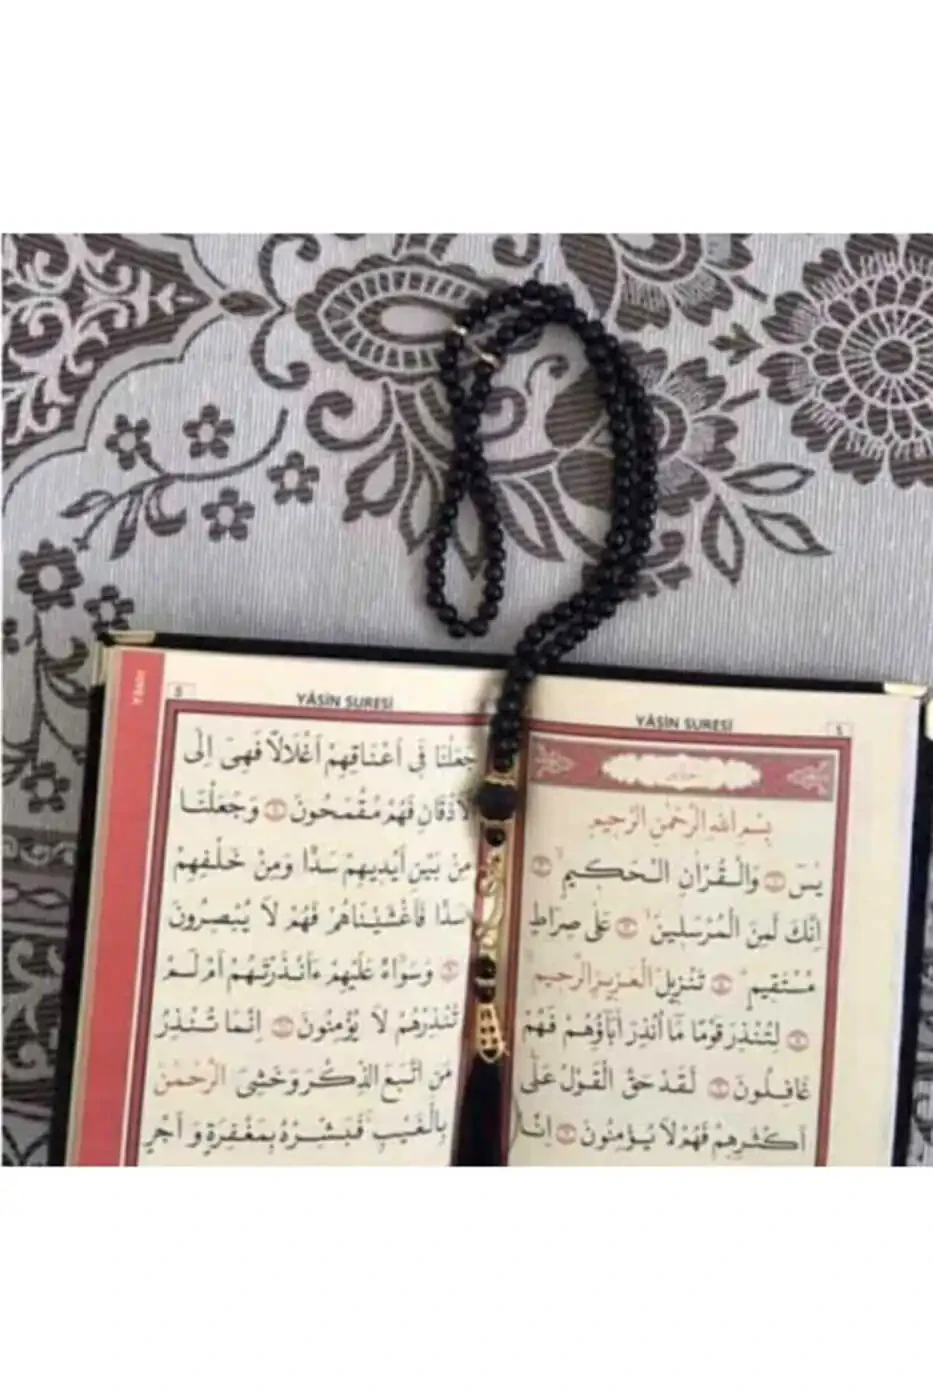 YÂSİN SURESİ
بِسْمِ اللّٰهِ الرَّحْمٰنِ الرَّحِيمِ
يٰسٓ ۞ وَالْقُرْاٰنِ الْحَكِيمِ ۞
اِنَّكَ لَمِنَ الْمُرْسَلِينَ ۞ عَلٰى صِرَاطٍ
مُسْتَقِيمٍ ۞ تَنْزِيلَ الْعَزِيزِ الرَّحِيمِ
۞ لِتُنْذِرَ قَوْمًا مَٓا اُنْذِرَ اٰبَٓاؤُهُمْ فَهُمْ
غَافِلُونَ ۞ لَقَدْ حَقَّ الْقَوْلُ عَلٰٓى
اَكْثَرِهِمْ فَهُمْ لَا يُؤْمِنُونَ ۞ اِنَّا
YÂSİN SURESİ
جَعَلْنَا فِٓى اَعْنَاقِهِمْ اَغْلَالًا فَهِىَ اِلَى
الْاَذْقَانِ فَهُمْ مُقْمَحُونَ ۞ وَجَعَلْنَا
مِنْ بَيْنِ اَيْدِيهِمْ سَدًّا وَمِنْ خَلْفِهِمْ
سَدًّا فَاَغْشَيْنَاهُمْ فَهُمْ لَا يُبْصِرُونَ
۞ وَسَوَٓاءٌ عَلَيْهِمْ ءَاَنْذَرْتَهُمْ اَمْ لَمْ
تُنْذِرْهُمْ لَا يُؤْمِنُونَ ۞ اِنَّمَا تُنْذِرُ
مَنِ اتَّبَعَ الذِّكْرَ وَخَشِىَ الرَّحْمٰنَ
بِالْغَيْبِ فَبَشِّرْهُ بِمَغْفِرَةٍ وَاَجْرٍ
YÂSİN